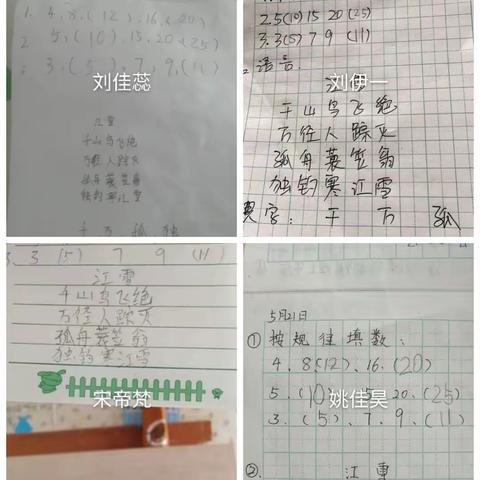 1. 4, 8, (12), 16, (20)
2 5, (10), 15, 20, (25)
3, (5), 7, 9, (11)
刘佳蕊
江雪
千山鸟飞绝
万径人踪灭
孤舟蓑笠翁
独钓寒江雪
千 万 孤 独
2.5(10)15 20(25)
3.3(5) 7 9 (11)
2语言.
刘伊一
江雪
千山鸟飞绝
万径人踪灭
孤舟蓑笠翁
独钓寒江雪
字: 千 万 孤
3. 3 (5) 7 9 (11)
江雪
千山鸟飞绝
万径人踪灭
孤舟蓑笠翁
独钓寒江雪
宋帝梵
5月21日
① 按规律填数:
4、8(12)、16、(20)
5、(10)、15、20、(25)
姚佳昊
3、(5)、7、9、(11)
②. 江雪